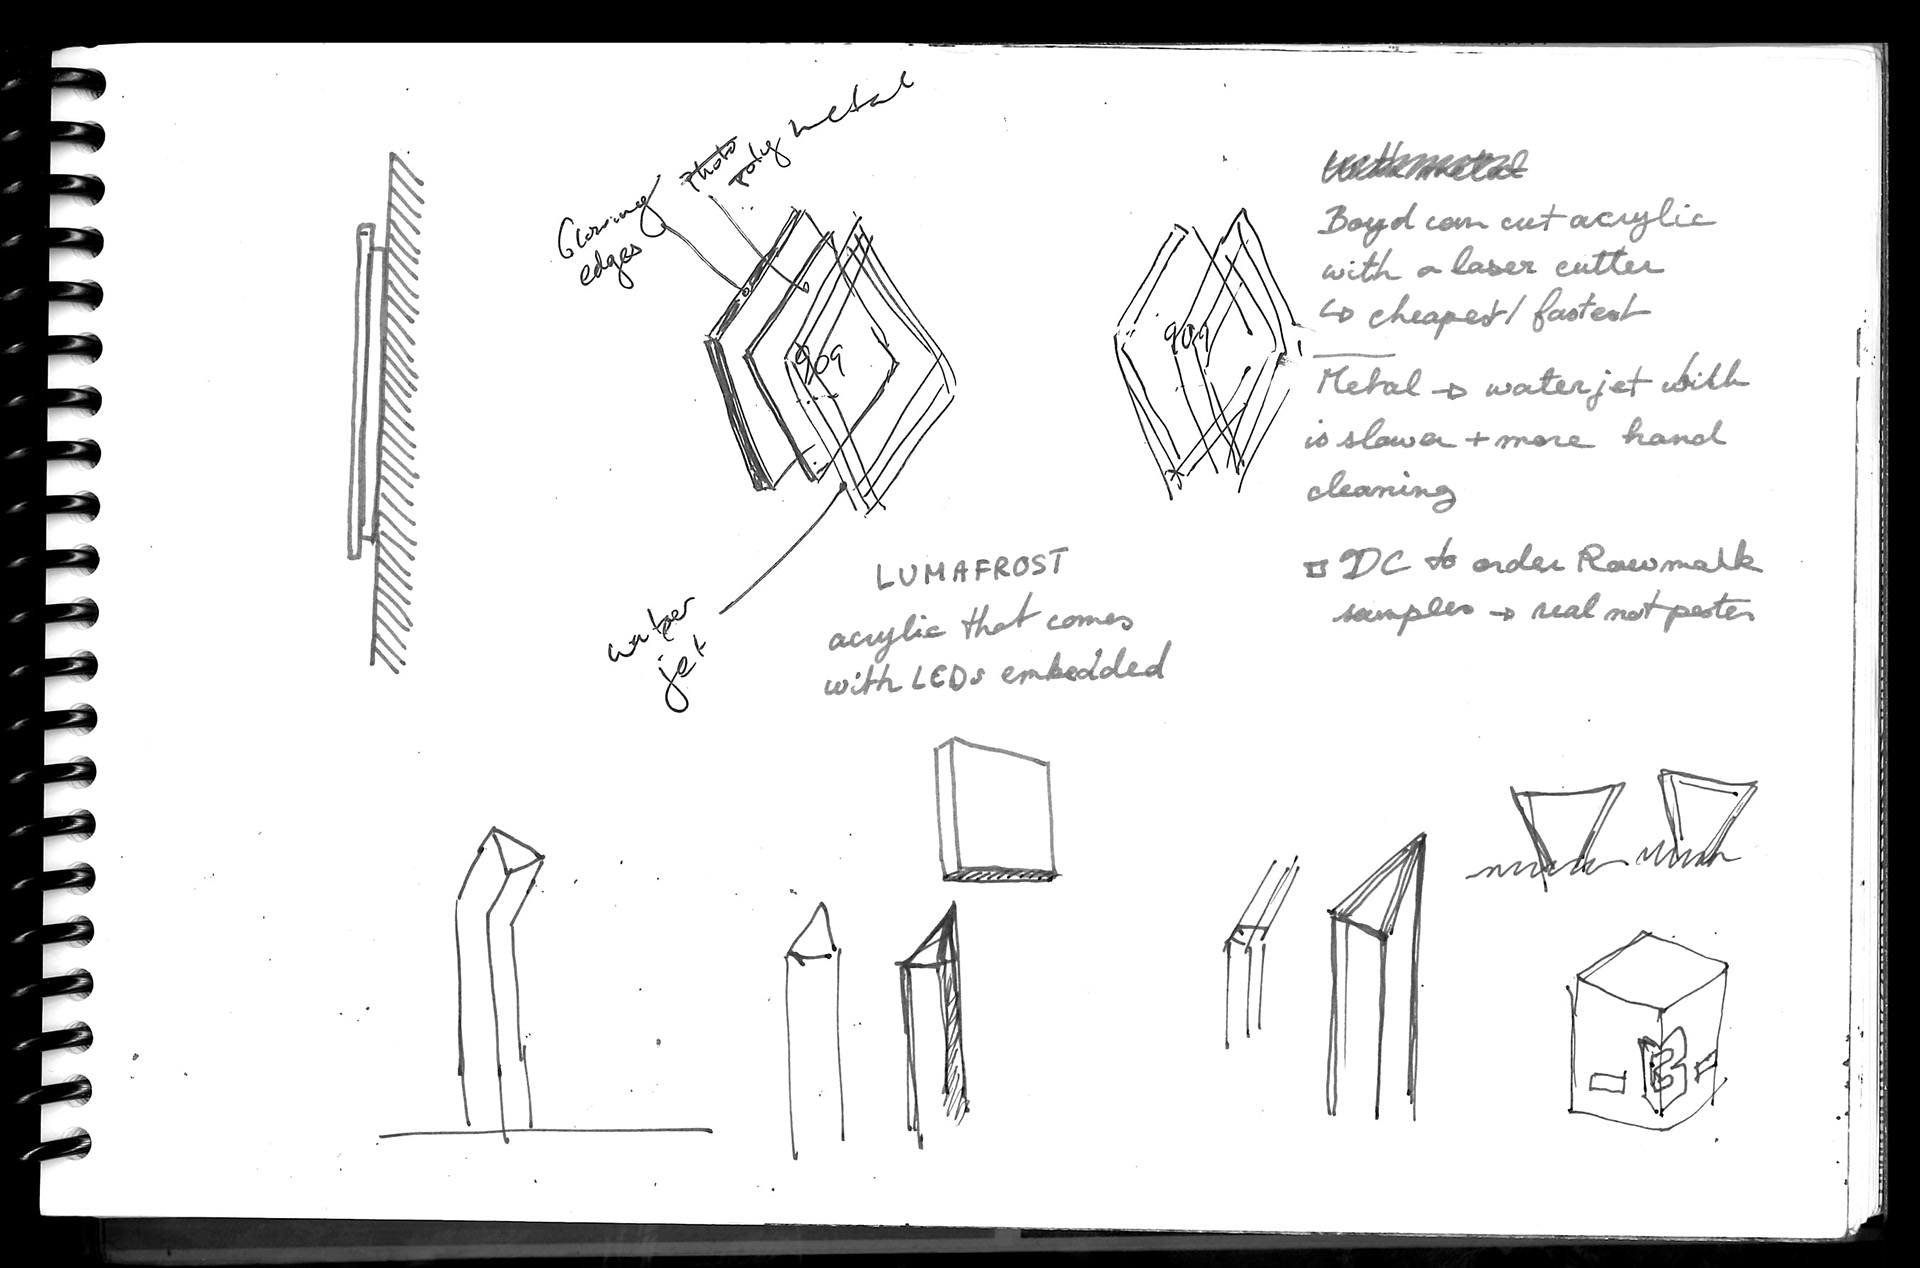 Glowing
edges
Photo
poly metal
909
water
jet
909
LUMAFROST
acrylic that comes
with LEDs embedded
Boyd can cut acrylic
with a laser cutter
↳ cheapest/fastest
Metal → waterjet with
is slower + more hand
cleaning
□ DC to order Rowmark
samples → real not pester
B